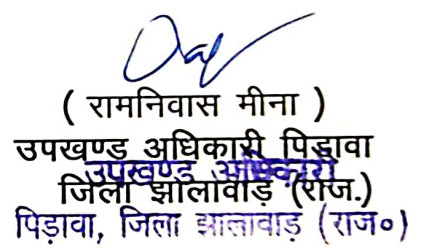 ( रामनिवास मीना )
उपखण्ड अधिकारी पिडावा
उपखण्ड अधिकारी
जिला झालावाड़ (राज.)
पिड़ावा, जिला झालावाड़ (राज०)